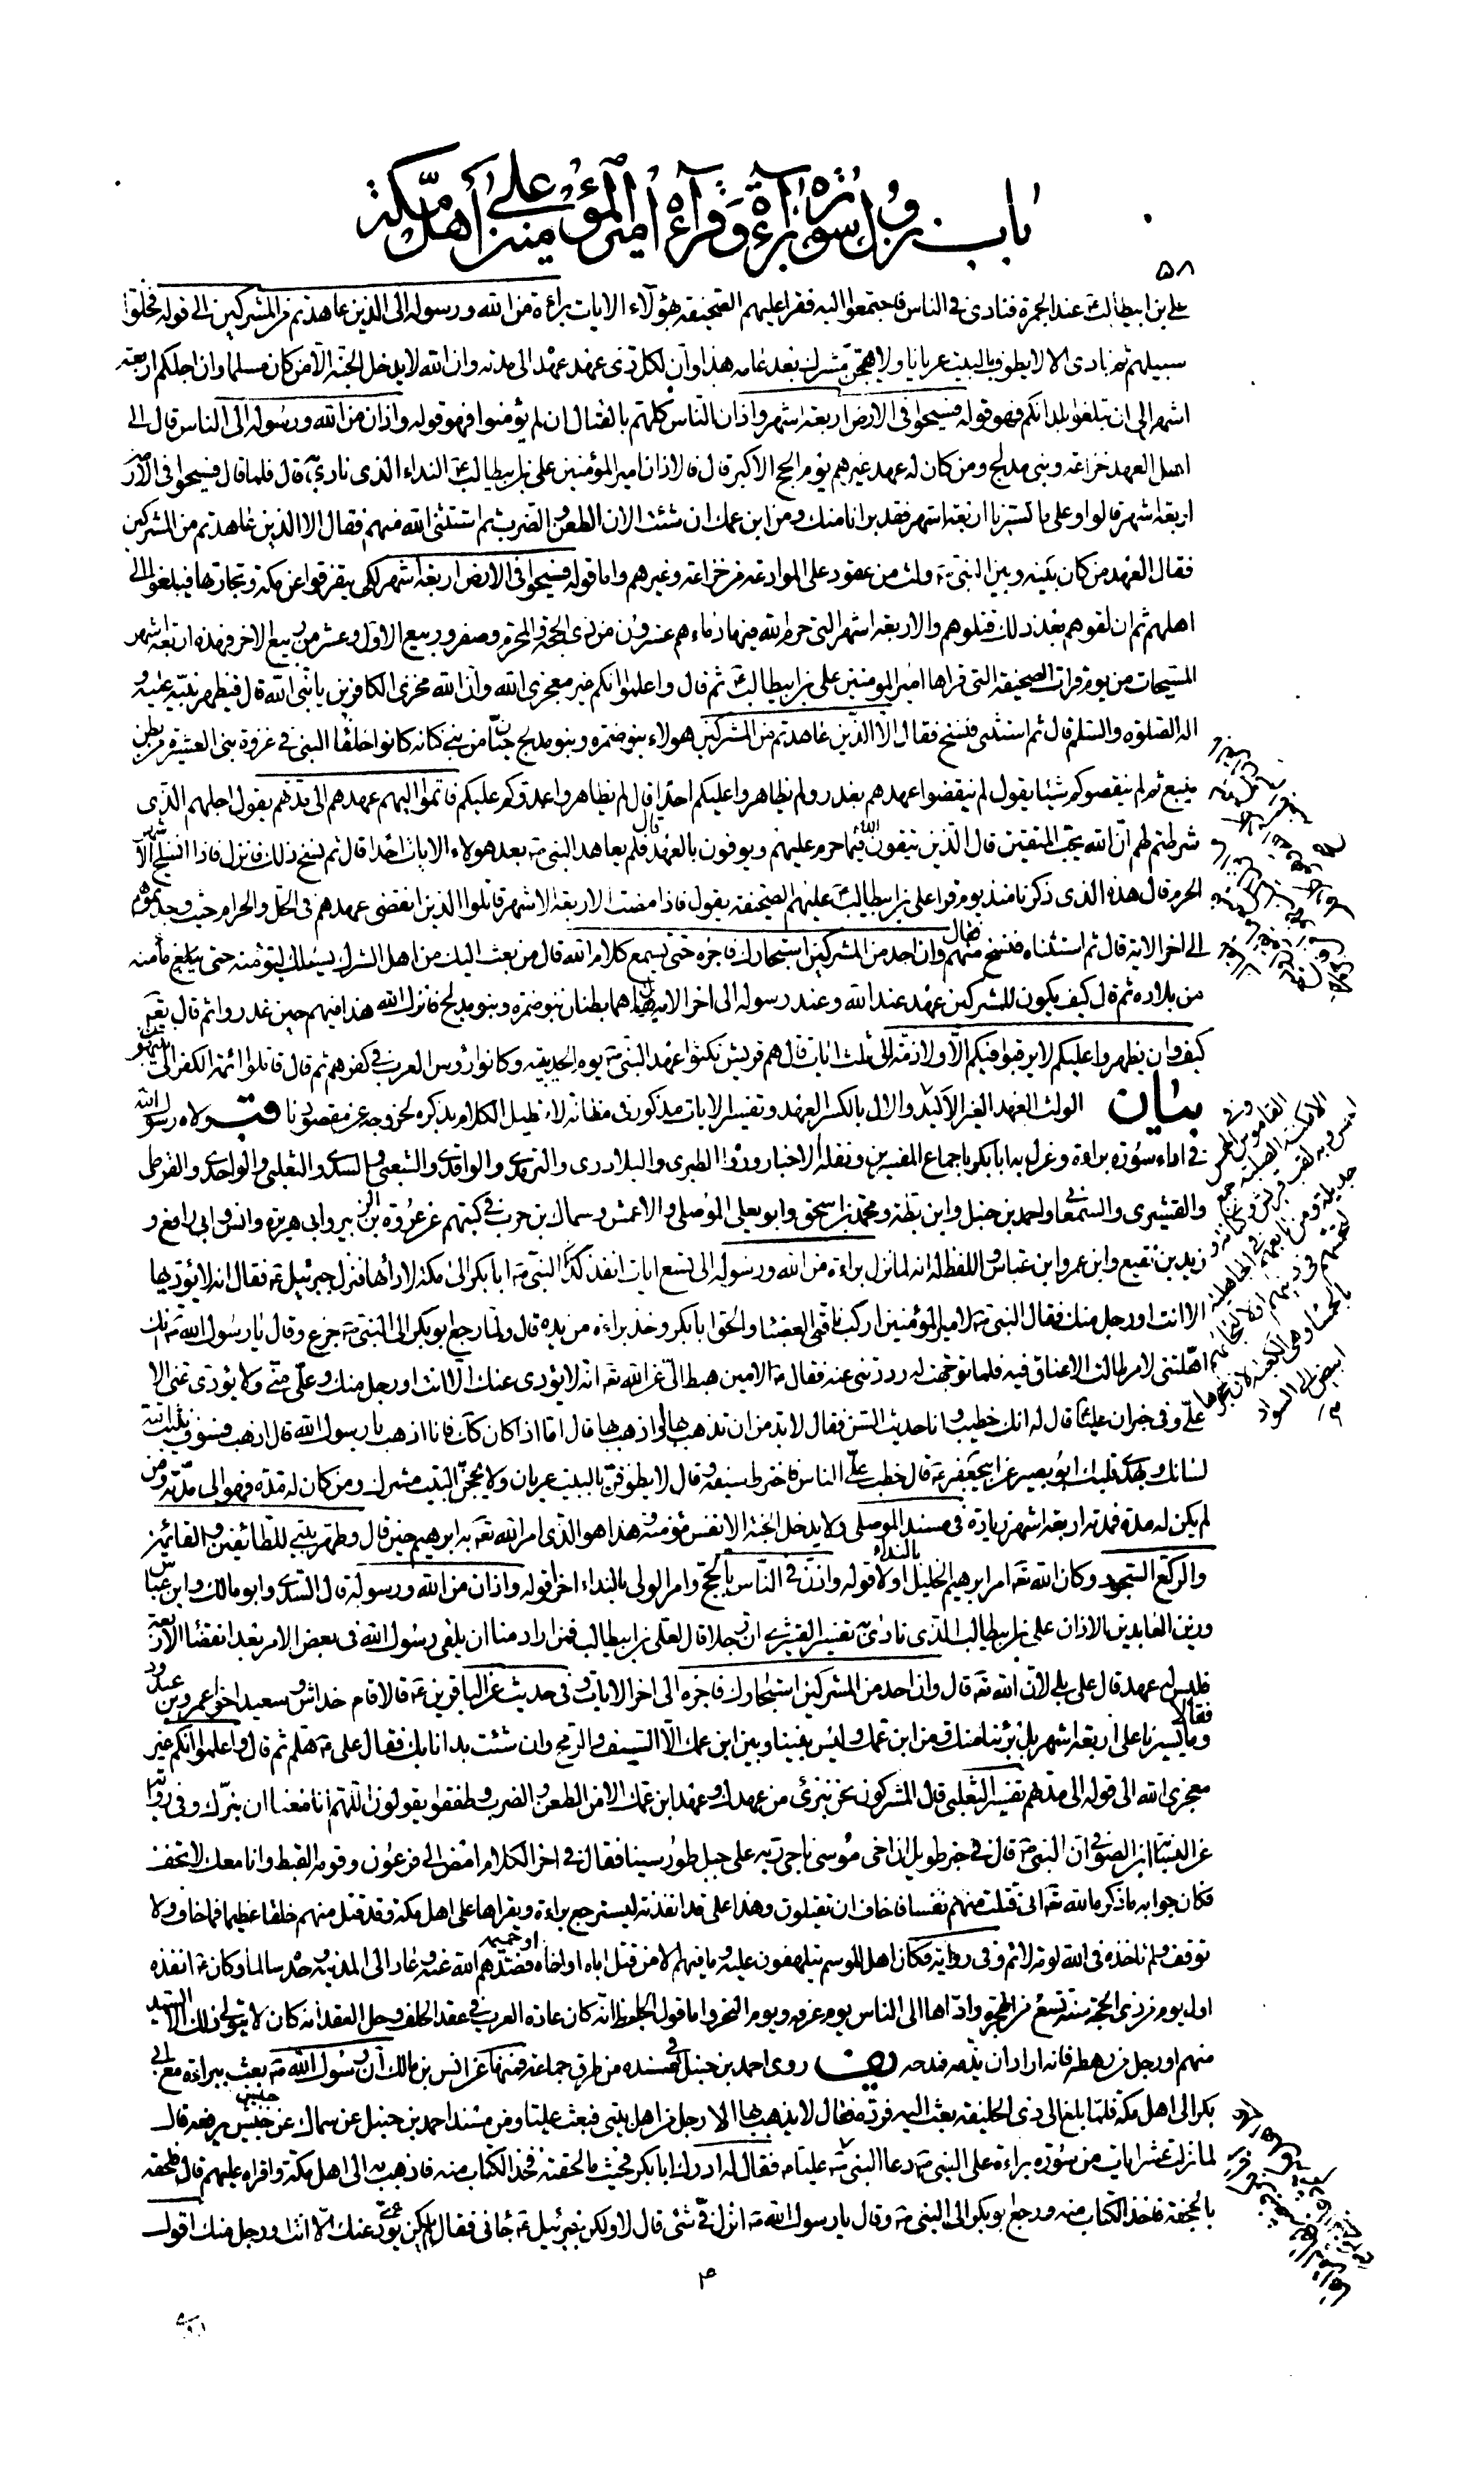 باب نزول سورة براءة وقراءة امير المؤمنين على أهل مكة
٥٨
علي بن ابيطالب ع عند الجمرة فنادى في الناس فاجتمعوا اليه فقرا عليهم الصحيفة بهؤلاء الايات براءة من الله ورسوله الى الذين عاهدتم من المشركين الى قوله فخلوا
سبيلهم ثم نادى الا لا يطوف بالبيت عريانا ولا يحجن مشرك بعد عامه هذا وان لكل ذي عهد عهد الى مدته وان الله لا يدخل الجنة الا من كان مسلما وان اجلكم اربعة
اشهر الى ان تبلغوا بلدانكم فهو قوله فسيحوا في الارض اربعة اشهر واذان الناس كلهم بالقتال ان لم يؤمنوا فهو قوله واذان من الله ورسوله الى الناس قال الى
اهل العهد خزاعة وبني مدلج ومن كان له عهد غيرهم يوم الحج الاكبر قال فالاذان امير المؤمنين علي بن ابيطالب ع النداء الذي نادى به قال فلما قال فسيحوا في الارض
اربعة اشهر قالوا وعلى ما تسيرنا اربعة اشهر فقد برانا منك ومن ابن عمك ان شئت الان الطعن والضرب ثم استثنى الله منهم فقال الا الذين عاهدتم من المشركين
فقال العهد من كان بينه وبين النبي ص ولث من عقود على الموادعة من خزاعة وغيرهم واما قوله فسيحوا في الارض اربعة اشهر لكي يتفرقوا عن مكة وتجارتها فيبلغوا الى
اهلهم ثم ان لقوهم بعد ذلك قتلوهم والاربعة اشهر التي حرم الله فيها دماءهم عشرون من ذي الحجة والمحرم وصفر وربيع الاول وعشر من ربيع الاخر فهذه اربعة اشهر
المسيحات من يوم قرات الصحيفة التي قراها امير المؤمنين علي بن ابيطالب ع ثم قال واعلموا انكم غير معجزي الله وان الله مخزي الكافرين يا نبي الله قال فيظهر نبيه عليه و
اله الصلوة والسلم قال ثم استثنى فنسخ فقال الا الذين عاهدتم من المشركين هولاء بنو ضمرة وبنو مدلج حيان من بني كنانة كانوا حلفا النبي في غزوة بني العشيرة من بطن
ينبع ثم لم ينقصوكم شيئا يقول لم ينقضوا عهدهم بغدر ولم يظاهروا عليكم احدا قال لم يظاهروا عدوكم عليكم فاتموا اليهم عهدهم الى مدتهم يقول اجلهم الذي
شرطتم لهم ان الله يحب المتقين قال الذين يتقون الله فيما حرم عليهم ويوفون بالعهد قال فلم يعاهد النبي ص بعد هولاء الايات احدا قال ثم نسخ ذلك فانزل فاذا انسلخ الاشهر
الحرم قال هذه الذي ذكرنا منذ يوم قرا علي بن ابيطالب ع عليهم الصحيفة يقول فاذا مضت الاربعة الاشهر قاتلوا الذين انقضى عهدهم في الحل والحرام حيث وجدتموهم
الى اخر الاية قال ثم استثناه فنسخ منهم فقال وان احد من المشركين استجارك فاجره حتى يسمع كلام الله قال من بعث اليك من اهل الشرك يسئلك لتؤمنه حتى يبلغ مأمنه
من بلاده ثم قال كيف يكون للمشركين عهد عند الله وعند رسوله الى اخر الاية قال هما بطنان بنو ضمرة وبنو مدلج فانزل الله هذا فيهم حين غدروا ثم قال تعه
كيف وان يظهروا عليكم لا يرقبوا فيكم الا ولا ذمة الى ثلث ايات قال هم قريش نكثوا عهد النبي ص يوم الحديبية وكانوا رؤس العرب في كفرهم ثم قال قاتلوا ائمة الكفر الى ينتهون
بيان الولث العهد الغير الاكيد والال بالكسر العهد وتفسير الايات مذكور في مظانه لا نطيل الكلام بذكره لخروجه عن مقصودنا قب ولاه رسول الله
في اداء سورة براءة وعزل به ابا بكر باجماع المفسرين ونقلة الاخبار ورواه الطبري والبلاذري والترمذي والواقدي والشعبي والسدي والثعلبي والواحدي والقرطي
والقشيري والسمعاني واحمد بن حنبل وابن بطة ومحمد بن اسحق وابو يعلى الموصلي والاعمش وسماك بن حرب في كتبهم عن عروة بن الزبير وابي هريرة وانس وابي رافع و
زيد بن نقيع وابن عمر وابن عباس واللفظ له انه لما نزل براءة من الله ورسوله الى تسع ايات انفذ النبي ص ابا بكر الى مكة لادائها فنزل جبرئيل ع فقال انه لا يؤديها
الا انت او رجل منك فقال النبي ص لامير المؤمنين اركب ناقتي العضباء والحق ابا بكر وخذ براءة من يده قال ولما رجع ابو بكر الى النبي ص جزع وقال يا رسول الله ص انك
اهلتني لامر طالت الاعناق فيه فلما توجهت له رددتني عنه فقال ص الامين هبط الي عن الله تعه انه لا يؤدي عنك الا انت او رجل منك وعلي مني ولا يؤدي عني الا
علي وفي خبر ان عليا قال له انك خطيب وانا حديث السن فقال لا بد من ان تذهب بها او اذهب بها قال اما اذا كان كك فانا اذهب يا رسول الله قال اذهب فسوف يثبت الله
لسانك ويهدي قلبك ابو بصير عن ابيجعفر ع قال خطب علي الناس فاخترط سيفه وقال لا يطوفن بالبيت عريان ولا يحجن البيت مشرك ومن كان له مدة فهو الى مدته ومن
لم يكن له مدة فمدته اربعة اشهر زيادة في مسند الموصلي ولا يدخل الجنة الا نفس مؤمنة وهذا هو الذي امر الله تعه به ابرهيم حين قال وطهر بيتي للطائفين والقائمين
والركع السجود وكان الله تعه امر ابرهيم الخليل بالنداء اولا قوله واذن في الناس بالحج وامر الولي بالنداء اخرا قوله واذان من الله ورسوله قال السدي وابو مالك وابن عباس
وزين العابدين الاذان علي بن ابيطالب الذي نادى به تفسير القشيري ان رجلا قال لعلي بن ابيطالب فمن اراد منا ان يلقى رسول الله في بعض الامر بعد انقضاء الاربعة
فليس له عهد قال علي بلى لان الله تعه قال وان احد من المشركين استجارك فاجره الى اخر الايات وفي حديث عن الباقرين ع قالا قام خداش وسعيد اخوا عمرو بن عبد ود
فقالا وما يسيرنا على اربعة اشهر بل برئنا منك ومن ابن عمك وليس بيننا وبين ابن عمك الا السيف والرمح وان شئت بدانا بك فقال علي ع هلم ثم قال واعلموا انكم غير
معجزي الله الى قوله الى مدتهم تفسير الثعلبي قال المشركون نحن نبرئ من عهدك وعهد ابن عمك الا من الطعن والضرب وطفقوا يقولون اللهم انا منعنا ان نبرك وفي رواية
عن النسابة ابن الصوفي ان النبي ص قال في خبر طويل ان اخي موسى ناجى ربه على جبل طور سينا فقال في اخر الكلام امض الى فرعون وقومه القبط وانا معك لا تخف
فكان جوابه ما ذكره الله تعه اني قتلت منهم نفسا فاخاف ان يقتلون وهذا علي قد انفذته ليسترجع براءة ويقراها على اهل مكة وقد قتل منهم خلقا عظيما فما خاف ولا
توقف ولم تاخذه في الله لومة لائم وفي رواية فكان اهل الموسم يتلهفون عليه وما فيهم الا من قتل اباه او اخاه او حميمه فصدهم الله عنه وعاد الى المدينة وحده سالما وكان ع انفذه
اول يوم من ذي الحجة سنة تسع من الهجرة واداها الى الناس يوم عرفة ويوم النحر واما قول الجاحظ انه كان عادة العرب في عقد الحلف وحل العقد انه كان لا يتولى ذلك الا السيد
منهم او رجل من رهطه فانه اراد ان يذمه فمدحه يف روى احمد بن حنبل في مسنده من طرق جماعة فمنها عن انس بن مالك ان رسول الله ص بعث ببراءة مع ابي
بكر الى اهل مكة فلما بلغ الى ذي الحليفة بعث اليه فرده فقال لا يذهب بها الا رجل من اهل بيتي فبعث عليا ومن مسند احمد بن حنبل عن سماك عن حنش يرفعه قال
لما نزلت عشر ايات من سورة براءة على النبي ص دعا النبي ص عليا ع فقال له ادرك ابا بكر فحيث ما لحقته فخذ الكتاب منه فاذهب به الى اهل مكة واقراه عليهم قال فلحقه
بالجحفة فاخذ الكتاب منه ورجع ابو بكر الى النبي ص وقال يا رسول الله ص انزل في شئ قال لا ولكن جبرئيل ع جائني فقال لم يكن يؤدي عنك الا انت او رجل منك اقول